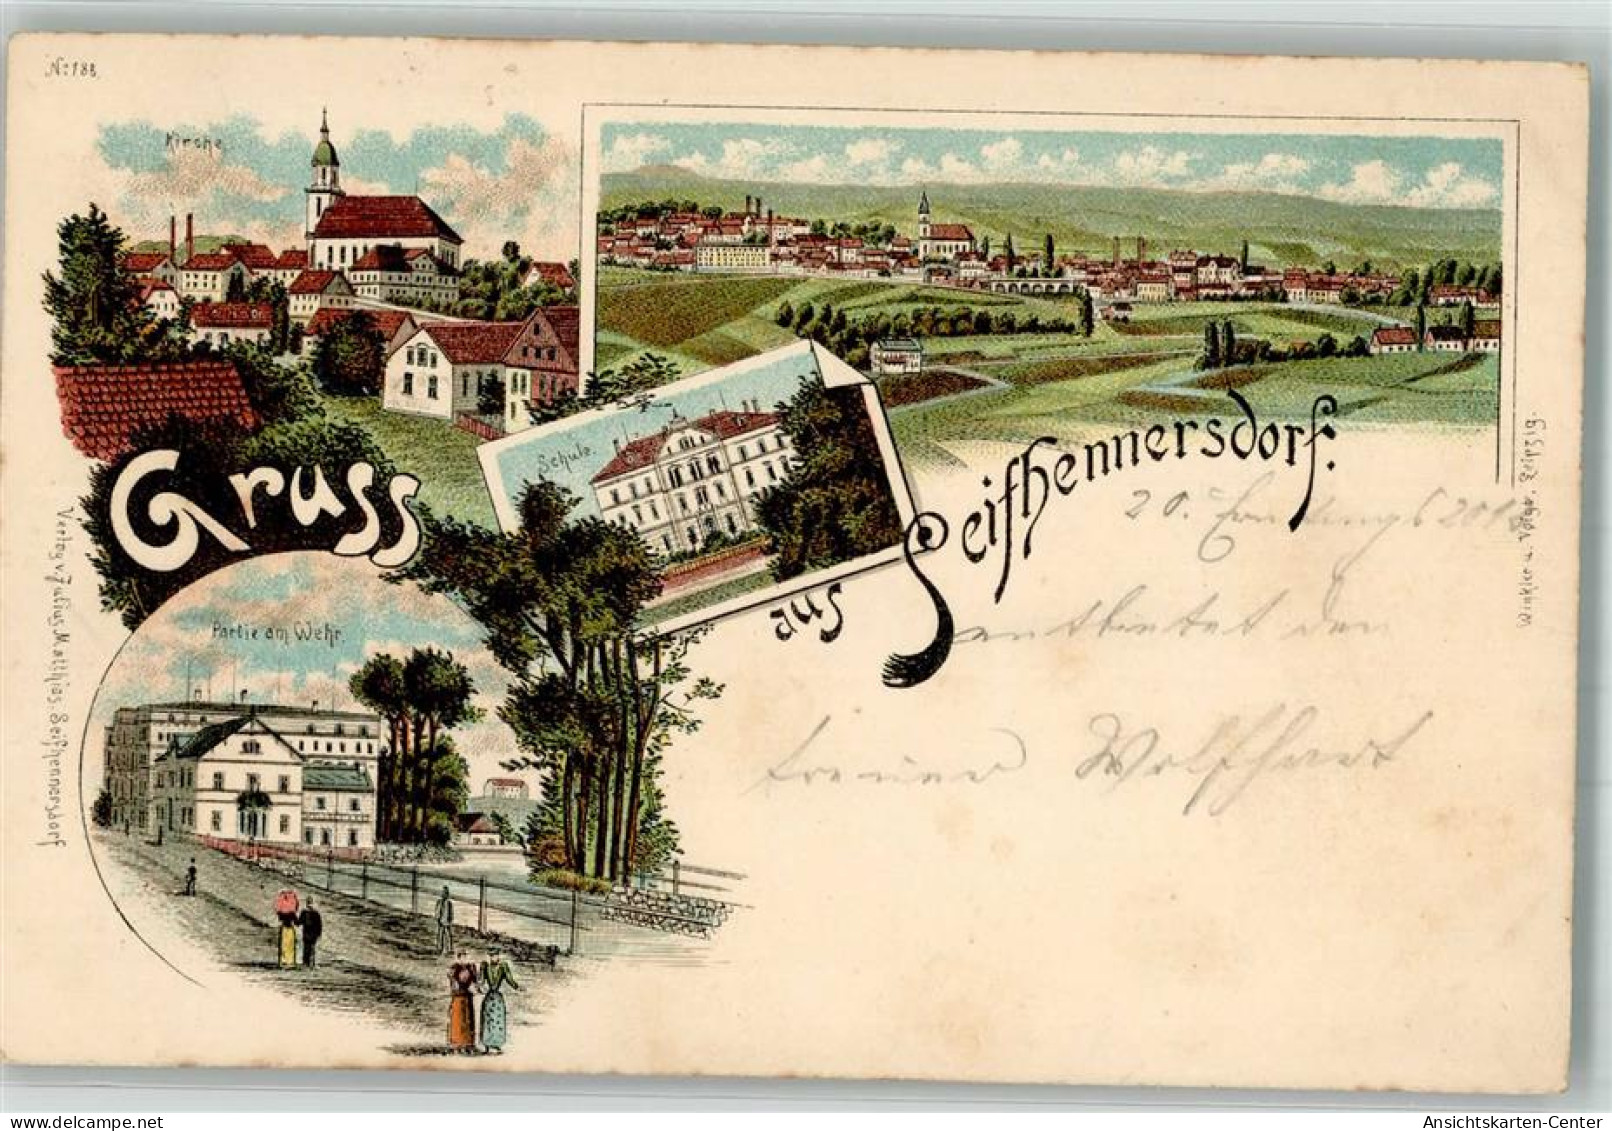 No 188.
Kirche
Schule.
Gruss
aus Seifhennersdorf.
Partie am Wehr.
Verlag v. Julius Matthias. Seifhennersdorf
Winkler u. Voigt, Leipzig.
20.
entbietet den
treuer Wolfhart
Ansichtskarten-Center